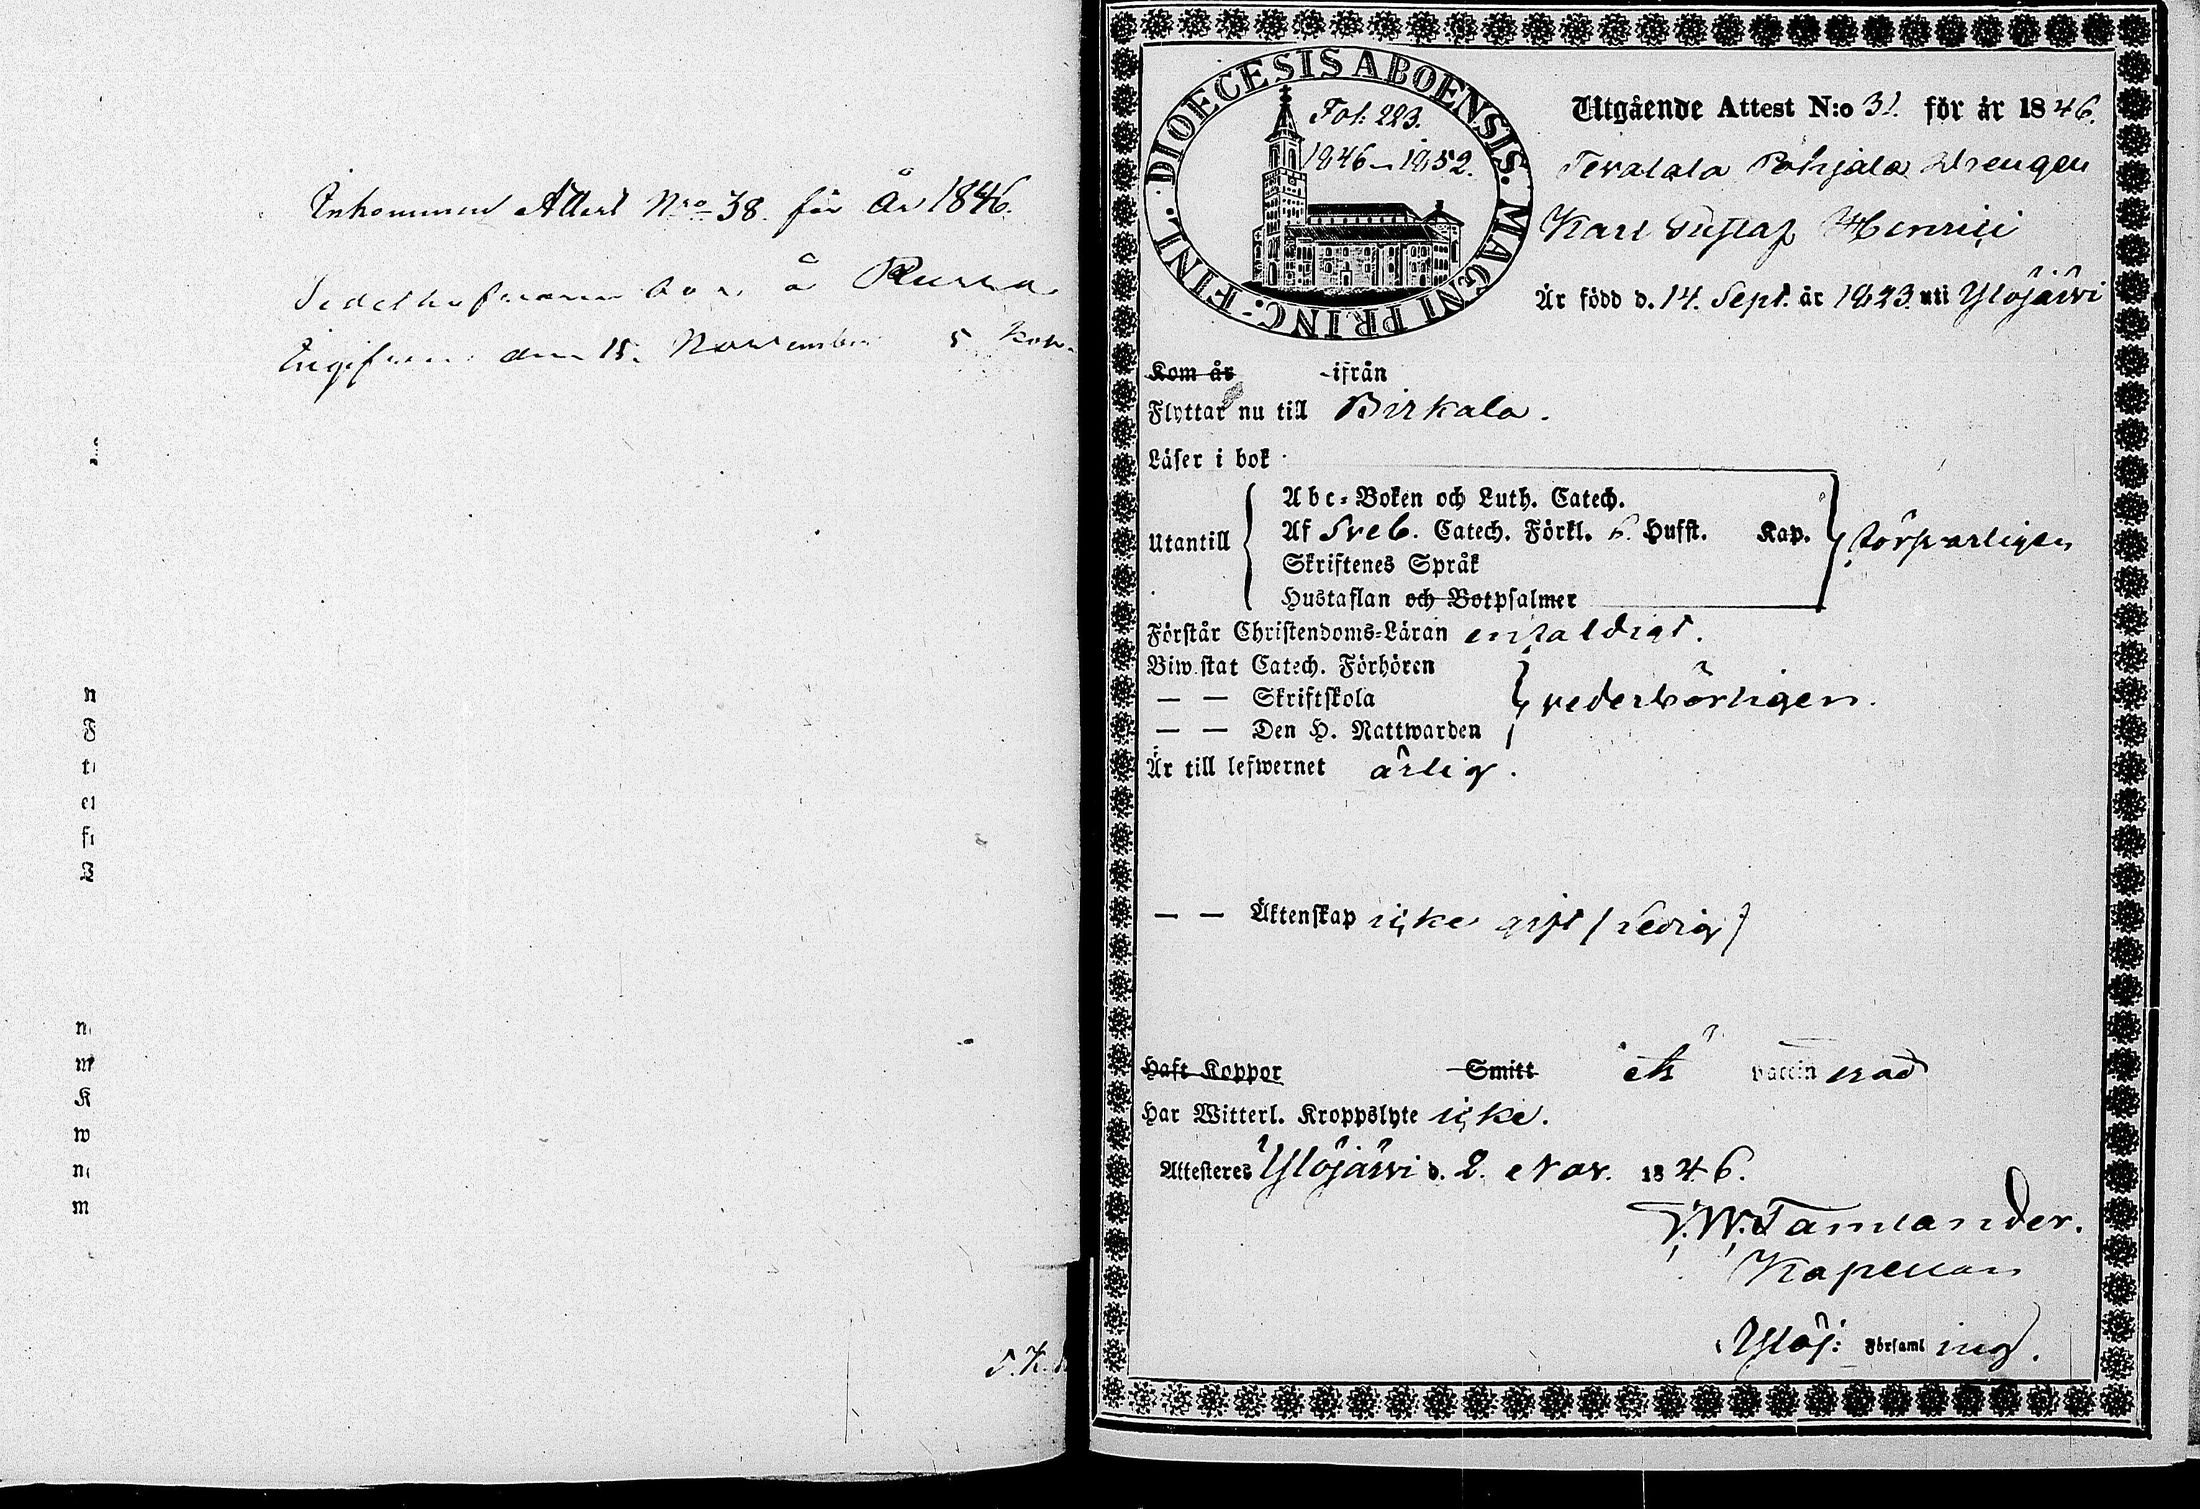 Inkommen Attest Nro 38. för År 1846.
å
den 15. November
DIOECESIS ABOENSIS. MAGNI PRINC: FINL.
Fol: 223.
1846–1852.
Utgående Attest N:o 31. för år 1846.
Pohjala Drengen
Karl Gustaf Henrici
Är född d. 14. Sept. år 1823. uti Ylöjärvi
Kom år ifrån
Flyttar nu till Birkala.
Läser i bok
Utantill
Abc-Boken och Luth. Catech.
Af Sveb. Catech. Förkl. 6. Hufst. Kap.
Skriftenes Språk
Hustaflan och Botpsalmer
försvarligen
Förstår Christendoms-Läran enfaldigt.
Biwistat Catech. Förhören
— — Skriftskola
— — Den H. Nattwarden
vederbörligen.
Är till lefwernet ärlig.
— — Äktenskap icke gift (ledig)
Haft Koppor Smitt vaccinerad
Har Witterl. Kroppslyte icke.
Attesteres Ylöjärvi d. 2. Nov. 1846.
Tamlander.
Kapellan
Ylöj: Församling.